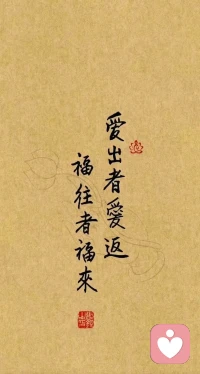 愛出者愛返
福往者福來